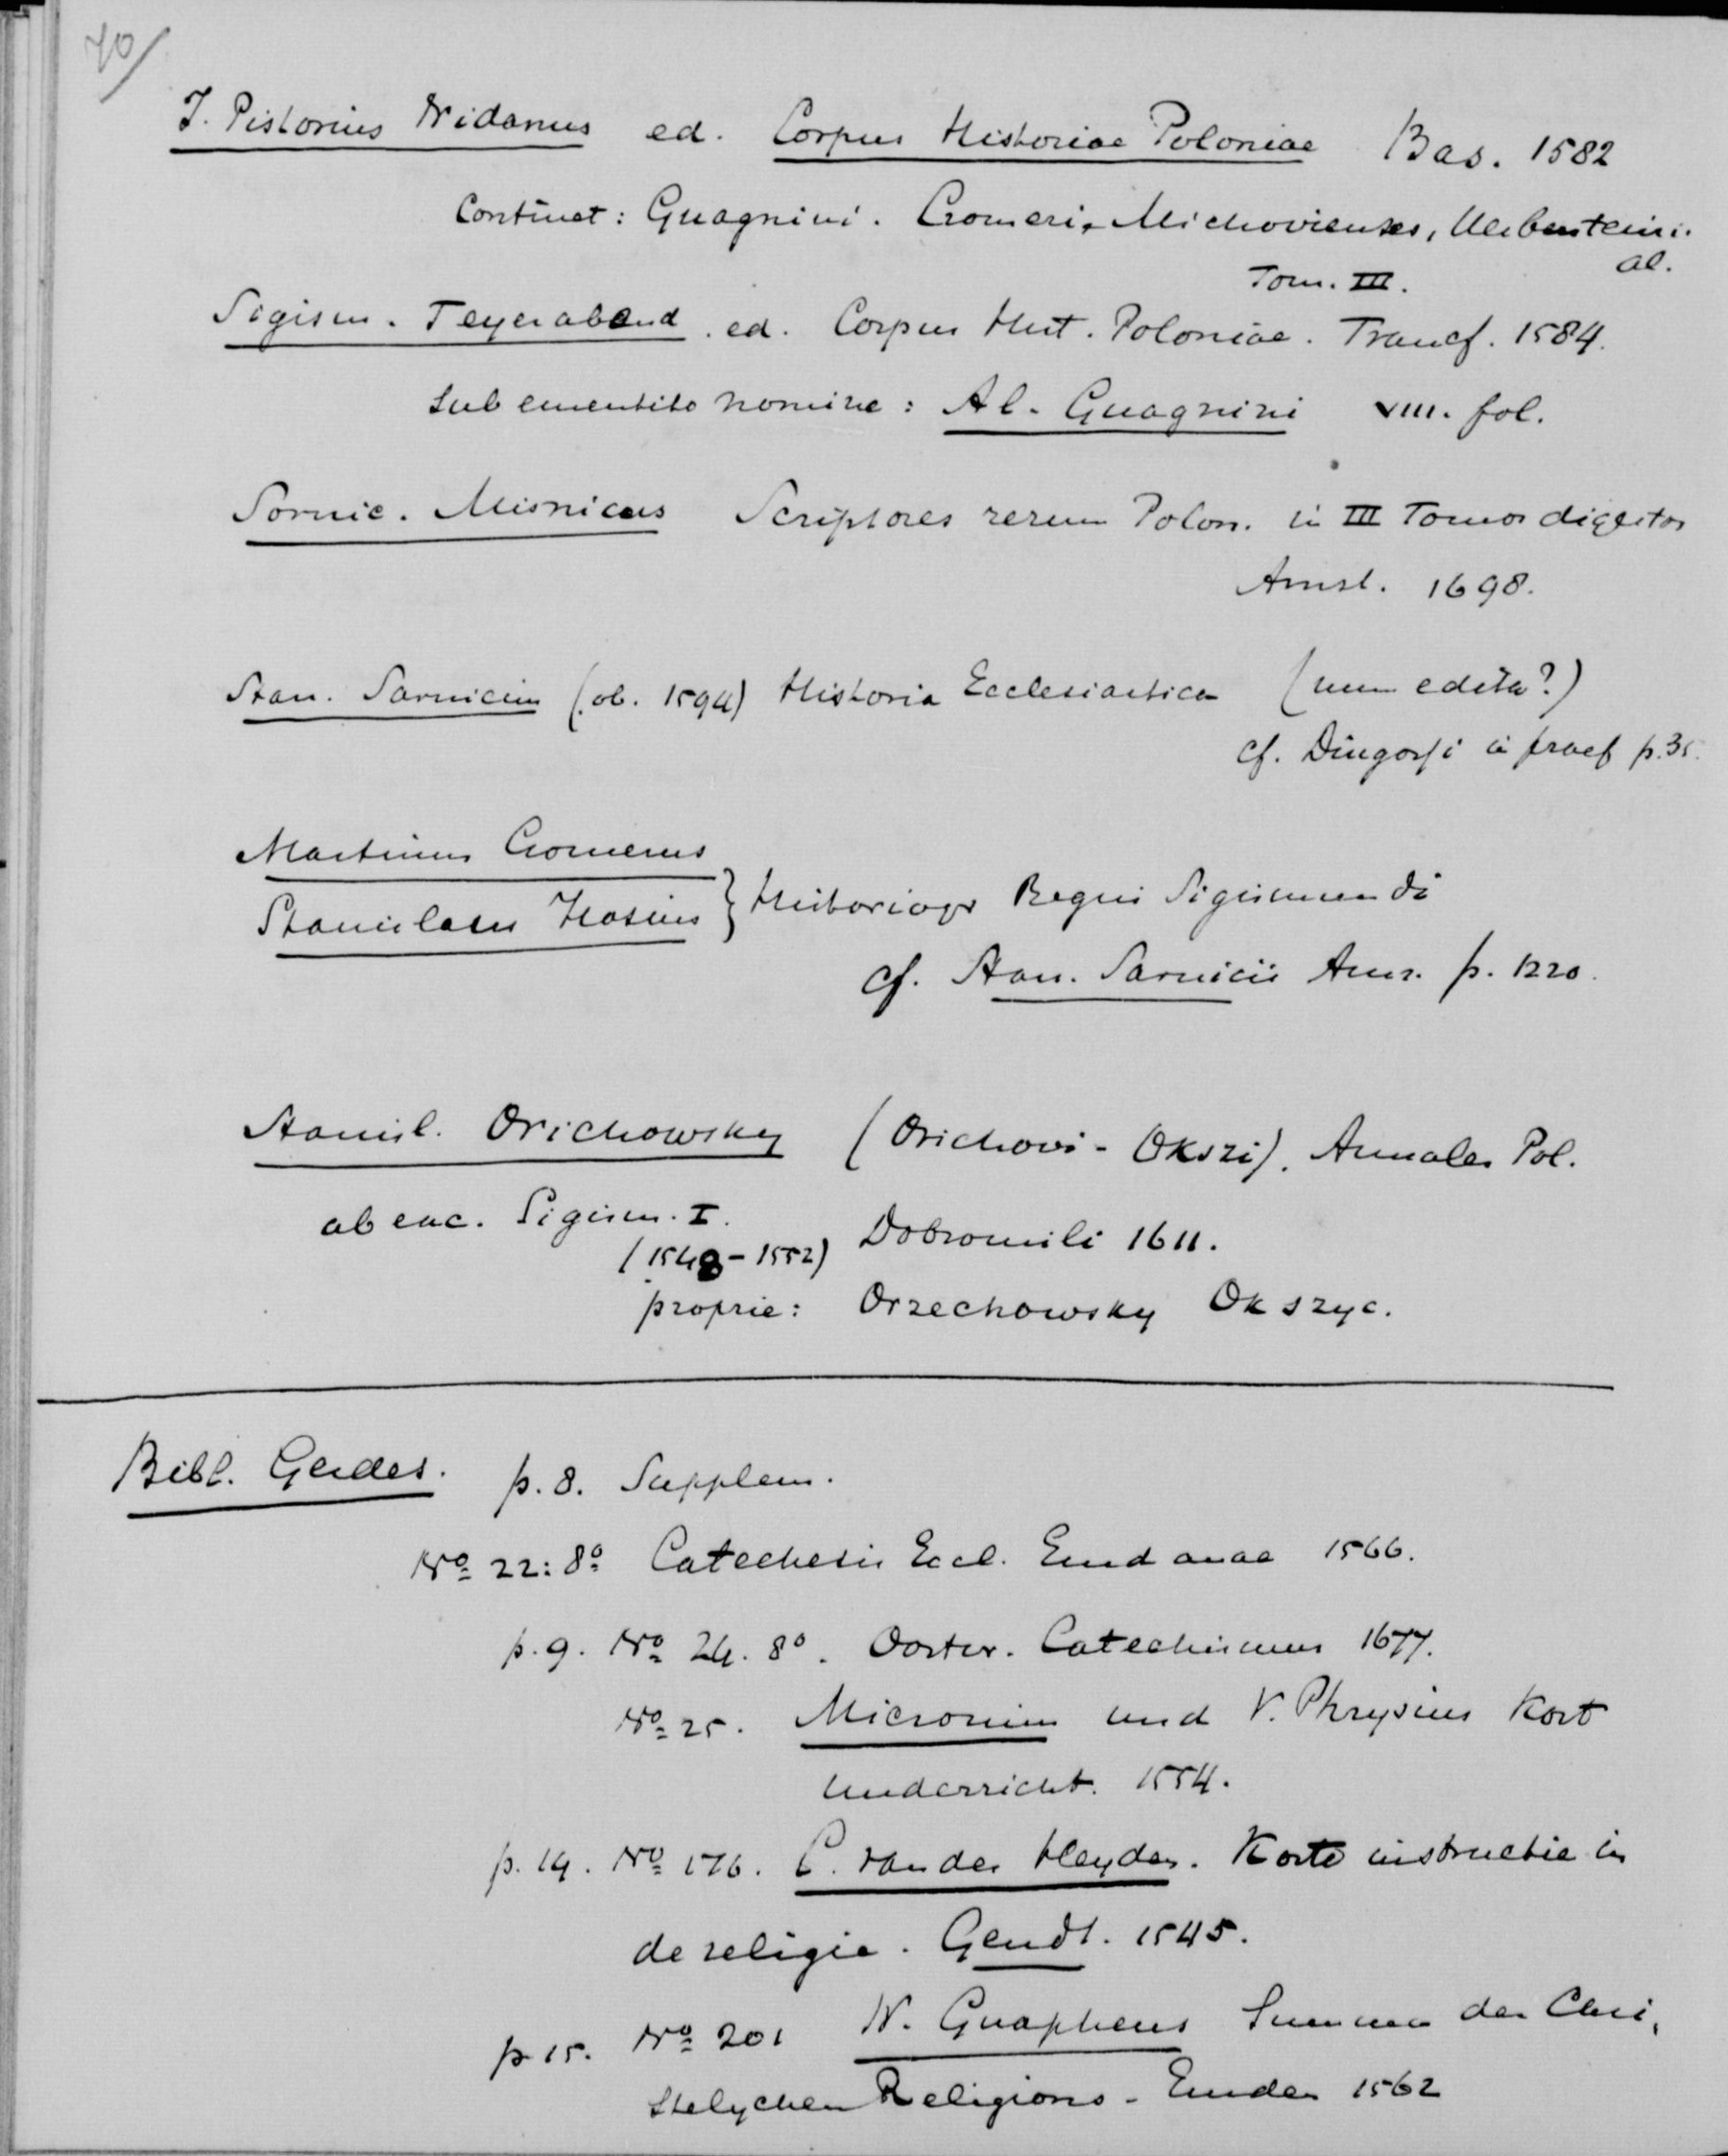 40/
J. Pistorius Nidanus ed. Corpus Historiae Poloniae Bas. 1582
Continet: Guagnini. Cromeri, Michoviensis, Herbersteini.
al.
Tom. III.
Sigism. Feyerabend. ed. Corpus Hist. Poloniae. Francf. 1584.
sub ementito nomine: Al. Guagnini VIII. fol.
Sornic. Misnicus Scriptores rerum Polon. in III Tomos digestos
Amst. 1698.
Stan. Sarnicius (ob. 1594) Historia Ecclesiastica (num edita?)
cf. in praef p.35.
Martinus Cromerus
Stanislaus Hosius } Historiogr Regni Sigismundi
cf. Stan. Sarnicii Ann. p. 1220.
Stanisl. Orichowsky (Orichovi - Okszi). Annales Pol.
ab exc. Sigism. I.
(1548-1552) Dobromili 1611.
proprie: Orzechowsky Okszyc.
Bibl. Gerdes. p. 8. Supplem.
No 22: 8o Catechesis Eccl. Emdanae 1566.
p. 9. No 24. 8o. Ostw. Catechismus 1677.
No 25. Micronius und V. Phrysius Kort
underricht. 1554.
p. 14. No 176. C. van der Heyden. Korte instructie in
de religie. Gendt. 1545.
p 15. No 201 W. Gnapheus Summa der Chri,
stelychen Religions - Emden 1562